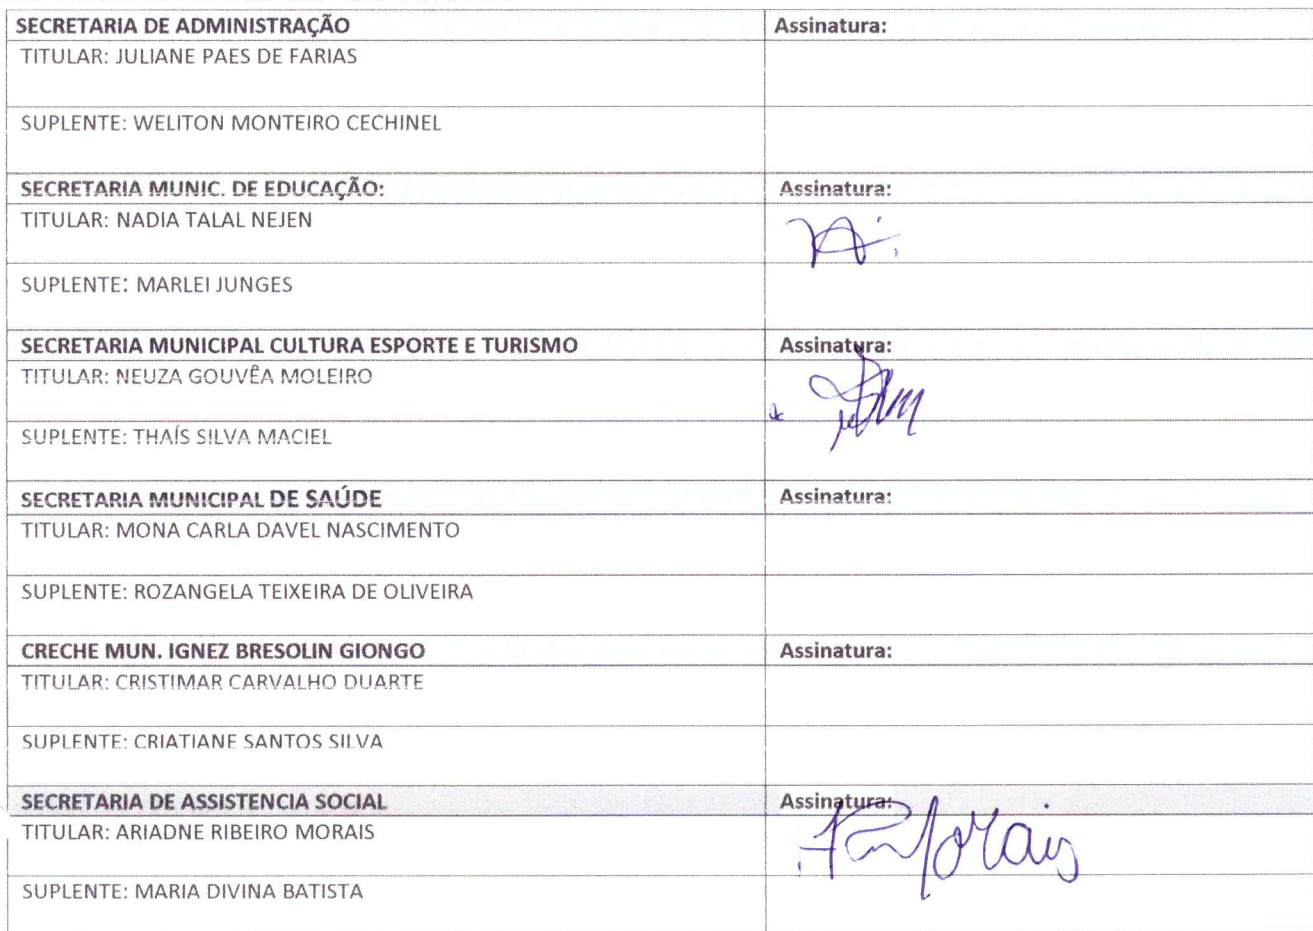 SECRETARIA DE ADMINISTRAÇÃO Assinatura:
TITULAR: JULIANE PAES DE FARIAS
SUPLENTE: WELITON MONTEIRO CECHINEL
SECRETARIA MUNIC. DE EDUCAÇÃO: Assinatura:
TITULAR: NADIA TALAL NEJEN
SUPLENTE: MARLEI JUNGES
SECRETARIA MUNICIPAL CULTURA ESPORTE E TURISMO Assinatura:
TITULAR: NEUZA GOUVÊA MOLEIRO
SUPLENTE: THAÍS SILVA MACIEL
SECRETARIA MUNICIPAL DE SAÚDE Assinatura:
TITULAR: MONA CARLA DAVEL NASCIMENTO
SUPLENTE: ROZANGELA TEIXEIRA DE OLIVEIRA
CRECHE MUN. IGNEZ BRESOLIN GIONGO Assinatura:
TITULAR: CRISTIMAR CARVALHO DUARTE
SUPLENTE: CRIATIANE SANTOS SILVA
SECRETARIA DE ASSISTENCIA SOCIAL Assinatura:
TITULAR: ARIADNE RIBEIRO MORAIS Morais
SUPLENTE: MARIA DIVINA BATISTA